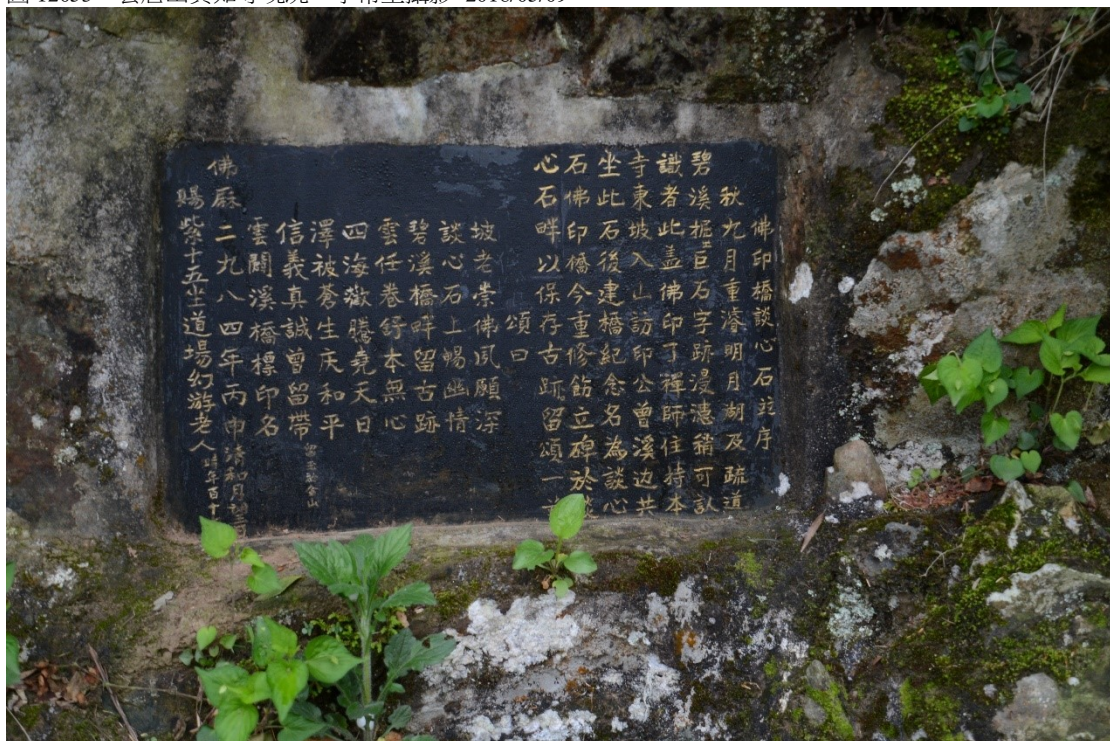 佛印橋談心石並序
秋九月重濬明月湖及疏道
碧溪掘巨石字跡漫漶稍可認
識者此盖佛印了禪師住持本
寺東坡入山訪印公曾溪边共
坐此石後建橋紀念名為談心
石佛印橋今重修飭立碑於談
心石畔以保存古跡留頌一首
頌曰
坡老崇佛夙願深
談心石上暢幽情
碧溪橋畔留古跡
雲任卷舒本無心
四海歡騰堯天日
澤被蒼生庆和平
信義真誠曾留帶
雲關溪橋標印名
佛曆二九八四年丙申清和月
賜紫十五坐道場幻游老人時年百十